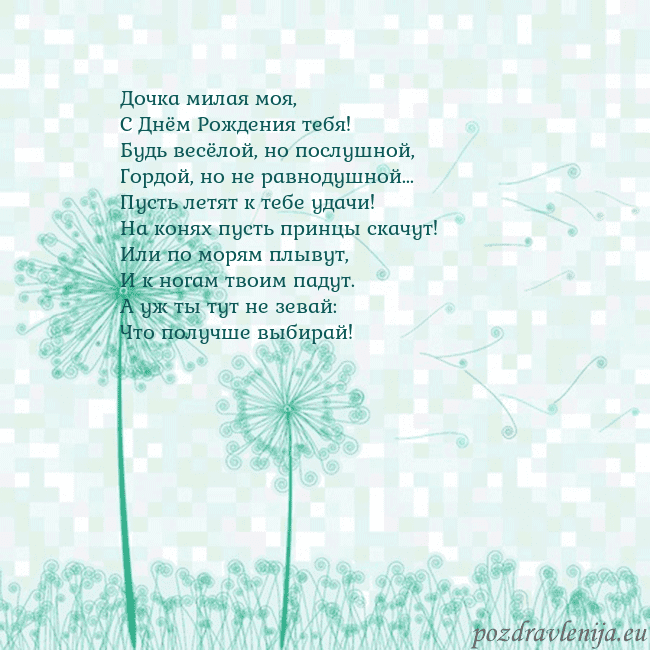 Дочка милая моя,
С Днём Рождения тебя!
Будь весёлой, но послушной,
Гордой, но не равнодушной...
Пусть летят к тебе удачи!
На конях пусть принцы скачут!
Или по морям плывут,
И к ногам твоим падут.
А уж ты тут не зевай:
Что получше выбирай!
pozdravlenija.eu